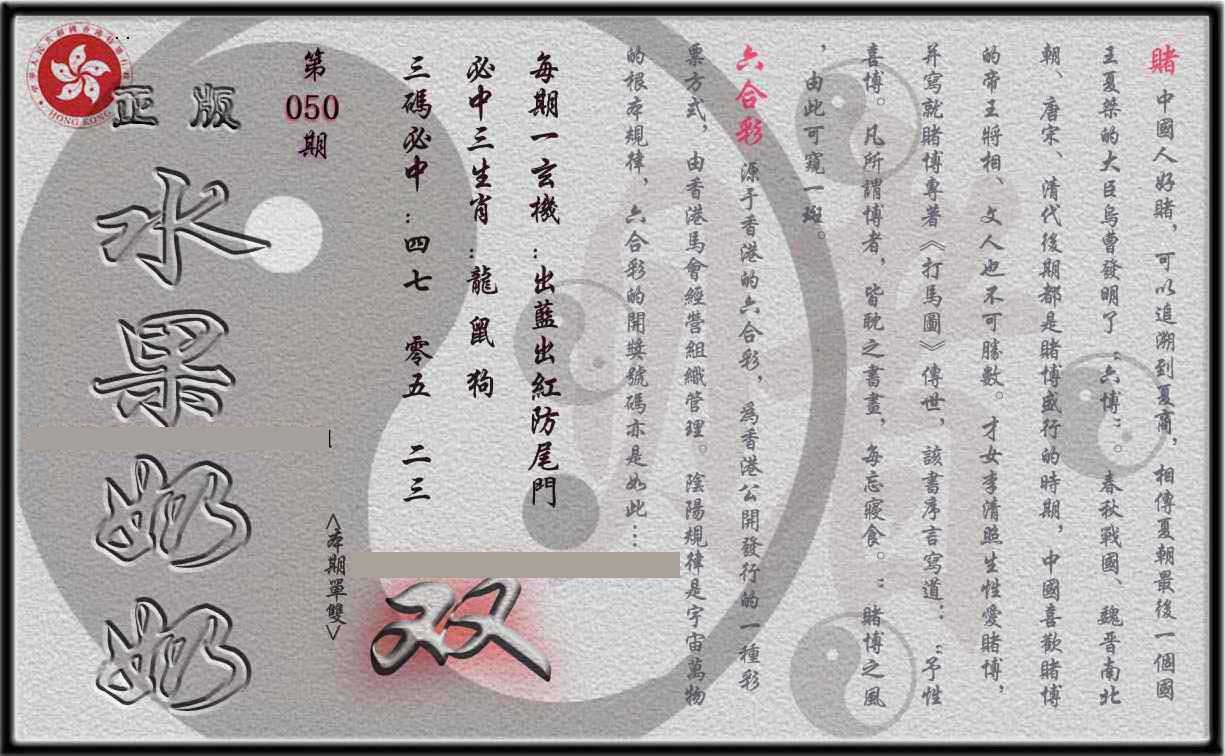 賭 中國人好賭，可以追溯到夏商，相傳夏朝最後一個國
王夏桀的大臣烏曹發明了“六博”。春秋戰國、魏晋南北
朝、唐宋、清代後期都是賭博盛行的時期，中國喜歡賭博
的帝王將相、文人也不可勝數。才女李清照生性愛賭博，
并寫就賭博專著《打馬圖》傳世，該書序言寫道：“予性
喜博。凡所謂博者，皆耽之書畫，每忘寢食。”賭博之風
，由此可窺一斑。
六合彩 源于香港的六合彩，爲香港公開發行的一種彩
票方式，由香港馬會經營組織管理。陰陽規律是宇宙萬物
的根本規律，六合彩的開獎號碼亦是如此…
每期一玄機：出藍出紅防尾門
必中三生肖：龍 鼠 狗
三碼必中：四七 零五 二三
<本期單雙>
双
第
050
期
正版
水果奶奶
HONG KONG